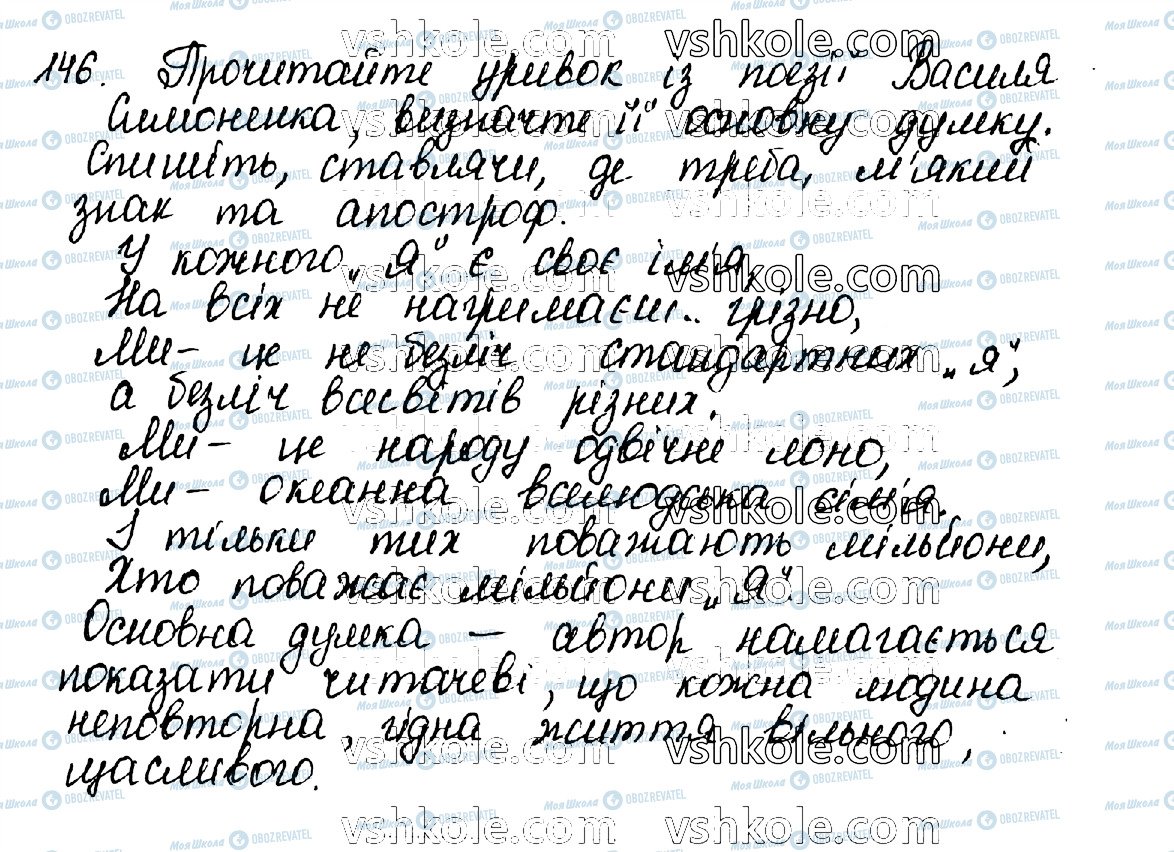 146. Прочитайте уривок із поезії Василя
Симоненка, визначте її основну думку.
Спишіть, ставлячи, де треба, м'який
знак та апостроф.
У кожного „Я“ є своє ім'я,
На всіх не нагримаєш.. грізно,
Ми – це не безліч стандартних „я“,
а безліч всесвітів різних.
Ми – це народу одвічне лоно,
Ми – океанна вселюдська сім'я.
І тільки тих поважають мільйони,
Хто поважає мільйони „Я“.
Основна думка – автор намагається
показати читачеві, що кожна людина
неповторна, гідна життя вільного,
щасливого.